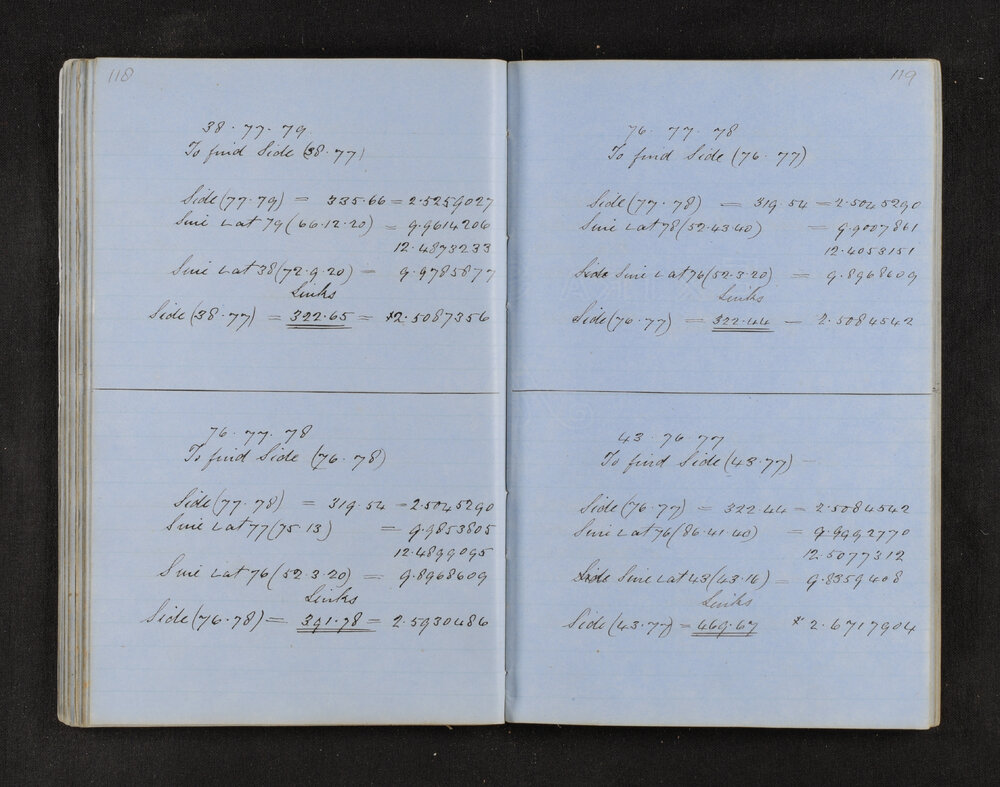 118
38 . 77 . 79
To find Side (38.77)
Side (77.79) = 335.66 = 2.5259027
Sine ∠ at 79 (66.12.20) = 9.9614206
12.4873233
Sine ∠ at 38 (72.9.20) = 9.9785877
Links
Side (38.77) = 322.65 = *2.5087356
76 . 77 . 78
To find Side (76.78)
Side (77.78) = 319.54 = 2.5045290
Sine ∠ at 77 (75 13) = 9.9853805
12.4899095
Sine ∠ at 76 (52.3.20) = 9.8968609
Links
Side (76.78) = 391.78 = 2.5930486
119
76 . 77 . 78
To find Side (76.77)
Side (77.78) = 319 54 = 2.5045290
Sine ∠ at 78 (52.43 40) = 9.9007861
12.4053151
Side Sine ∠ at 76 (52.3.20) = 9.8968609
Links
Side (76.77) = 322.44 = 2.5084542
43 . 76 . 77
To find Side (43.77)
Side (76.77) = 322.44 = 2.5084542
Sine ∠ at 76 (86.41 40) = 9.9992770
12.5077312
Side Sine ∠ at 43 (43.16) = 9.8359408
Links
Side (43.77) = 469.67 * 2.6717904